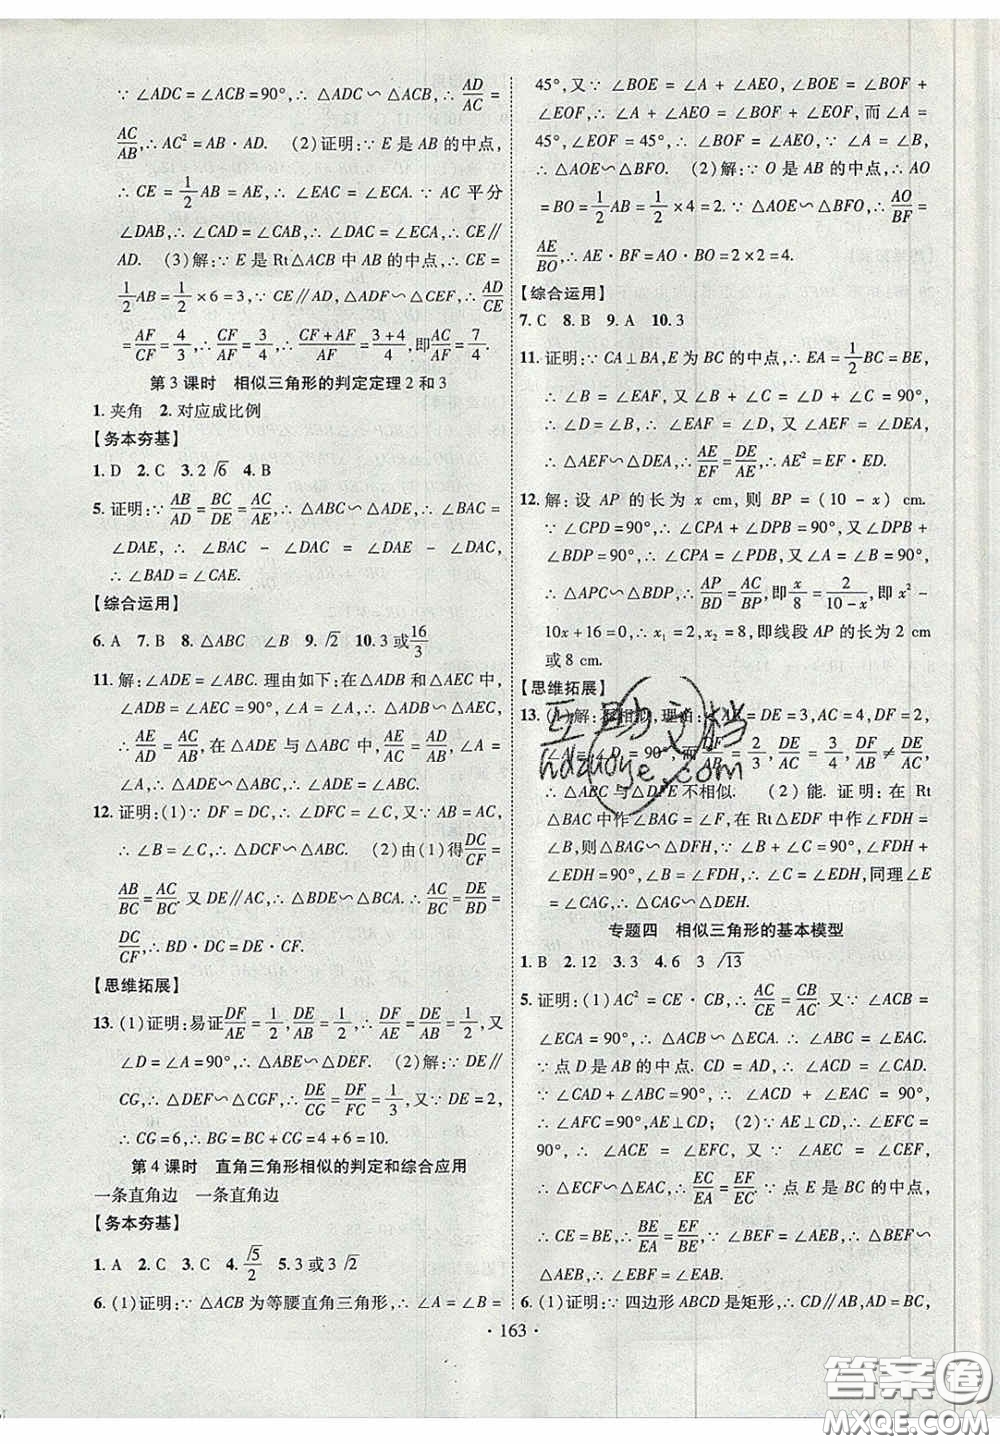 ∵ ∠ADC = ∠ACB = 90°, ∴ △ADC∽△ACB, ∴ AD/AC =
AC/AB, ∴ AC² = AB·AD. (2)证明:∵ E 是 AB 的中点,
∴ CE = 1/2 AB = AE, ∴ ∠EAC = ∠ECA. ∵ AC 平分
∠DAB, ∴ ∠CAD = ∠CAB, ∴ ∠DAC = ∠ECA, ∴ CE∥
AD. (3)解:∵ E 是 Rt△ACB 中 AB 的中点, ∴ CE =
1/2 AB = 1/2 × 6 = 3, ∵ CE∥AD, ∴ △ADF∽△CEF, ∴ AD/CE
= AF/CF = 4/3, ∴ CF/AF = 3/4, ∴ (CF + AF)/AF = (3+4)/4, 即 AC/AF = 7/4.
第 3 课时 相似三角形的判定定理 2 和 3
1. 夹角 2. 对应成比例
【务本夯基】
1. D 2. C 3. 2√6 4. B
5. 证明:∵ AB/AD = BC/DE = AC/AE, ∴ △ABC∽△ADE, ∴ ∠BAC =
∠DAE, ∴ ∠BAC − ∠DAC = ∠DAE − ∠DAC,
∴ ∠BAD = ∠CAE.
【综合运用】
6. A 7. B 8. △ABC ∠B 9. √2 10. 3 或 16/3
11. 解:∠ADE = ∠ABC. 理由如下:在 △ADB 和 △AEC 中,
∠ADB = ∠AEC = 90°, ∠A = ∠A, ∴ △ADB∽△AEC,
∴ AE/AD = AC/AB, 在 △ADE 与 △ABC 中, AE/AC = AD/AB, ∠A =
∠A, ∴ △ADE∽△ABC, ∴ ∠ADE = ∠ABC.
12. 证明:(1)∵ DF = CD, ∴ ∠DFC = ∠DCF, ∵ AB = AC,
∴ ∠B = ∠ACB, ∴ △DCF∽△ABC. (2)由(1)得 DC/CF =
AB/BC = AC/BC. 又 DE∥AC, ∴ ∠DEB = ∠ACB = ∠B, ∴ AC/BC = DE/BD =
DC/CF, ∴ BD·DC = DE·CF.
【思维拓展】
13. (1)证明:易证 DF/AE = 1/2, DE/AB = 1/2, ∴ DF/AE = DE/AB = 1/2, 又
∠D = ∠A = 90°, ∴ △ABE∽△DEF. (2)解:∵ DE∥
CG, ∴ △DEF∽△CGF, ∴ DE/CG = DF/FC = 1/3, 又∵ DE = 2,
∴ CG = 6, ∴ BG = BC + CG = 4 + 6 = 10.
第 4 课时 直角三角形相似的判定和综合应用
一条直角边 一条直角边
【务本夯基】
1. A 2. C 3. C 4. √5/2 5. 3 或 3√2
6. (1)证明:∵ △ACB 为等腰直角三角形, ∴ ∠A = ∠B =
45°, 又∵ ∠BOE = ∠A + ∠AEO, ∠BOE = ∠BOF +
∠EOF, ∴ ∠A + ∠AEO = ∠BOF + ∠EOF, 而 ∠A =
45°, ∠EOF = 45°, ∴ ∠BOF = ∠AEO, ∵ ∠A = ∠B,
∴ △AOE∽△BFO. (2)解:∵ O 是 AB 的中点, ∴ AO
= BO = 1/2 AB = 1/2 × 4 = 2. ∵ △AOE∽△BFO, ∴ AO/BF =
AE/BO, ∴ AE·BF = AO·BO = 2×2 = 4.
【综合运用】
7. C 8. B 9. A 10. 3
11. 证明:∵ CA⊥BA, E 为 BC 的中点, ∴ EA = 1/2 BC = BE,
∴ ∠B = ∠EAF, 又∵ ∠C + ∠D = ∠C + ∠B = 90°,
∴ ∠B = ∠D, ∴ ∠EAF = ∠D, 又∵ ∠AEF = ∠DEA,
∴ △AEF∽△DEA, ∴ AE/EF = DE/AE, ∴ AE² = EF·ED.
12. 解: 设 AP 的长为 x cm, 则 BP = (10 − x) cm.
∵ ∠CPD = 90°, ∴ ∠CPA + ∠DPB = 90°, 又∠DPB +
∠BDP = 90°, ∴ ∠CPA = ∠PDB, 又∠A = ∠B = 90°,
∴ △APC∽△BDP, ∴ AP/BD = AC/BP, 即 x/8 = 2/(10−x), 即 x² −
10x + 16 = 0, ∴ x₁ = 2, x₂ = 8, 即线段 AP 的长为 2 cm
或 8 cm.
【思维拓展】
13. (1)解:不相似, 理由:∵ AB = DE = 3, AC = 4, DF = 2,
∠A = ∠D = 90°, 而 DF/AB = 2/3, DE/AC = 3/4, ∴ DF/AB ≠ DE/AC,
∴ △ABC 与 △DFE 不相似. (2)能. 证明:在 Rt
△BAC 中作 ∠BAG = ∠F, 在 Rt△EDF 中作 ∠FDH =
∠B, 则△BAG∽△DFH, ∵ ∠B + ∠C = 90°, ∠FDH +
∠EDH = 90°, ∠B = ∠FDH, ∴ ∠C = ∠EDH, 同理∠E
= ∠CAG, ∴ △CAG∽△DEH.
专题四 相似三角形的基本模型
1. B 2. 12 3. 3 4. 6 3√13
5. 证明:(1)AC² = CE·CB, ∴ AC/CE = CB/AC. 又∵ ∠ACB =
∠ECA = 90°, ∴ △ACB∽△ECA, ∴ ∠ABC = ∠EAC.
∵ 点 D 是 AB 的中点. CD = AD, ∴ ∠ACD = ∠CAD.
∵ ∠CAD + ∠ABC = 90°, ∴ ∠ACD + ∠EAC = 90°,
∴ ∠AFC = 90°, ∴ AE⊥CD; (2)∵ AE⊥CD, ∴ ∠EFC =
90°, ∴ ∠ACE = ∠EFC, 又∵ ∠AEC = ∠CEF,
∴ △ECF∽△EAC, ∴ EC/EA = EF/EC. ∵ 点 E 是 BC 的中点,
∴ CE = BE, ∴ BE/EA = EF/BE, ∵ ∠BEF = ∠AEB, ∴ △BEF∽
△AEB, ∴ ∠EBF = ∠EAB.
6. (1)证明:∵ 四边形 ABCD 是矩形, ∴ CD∥AB, AD = BC,
· 163 ·
互助文档
hdzuoye.com
答案圈
MXQE.COM